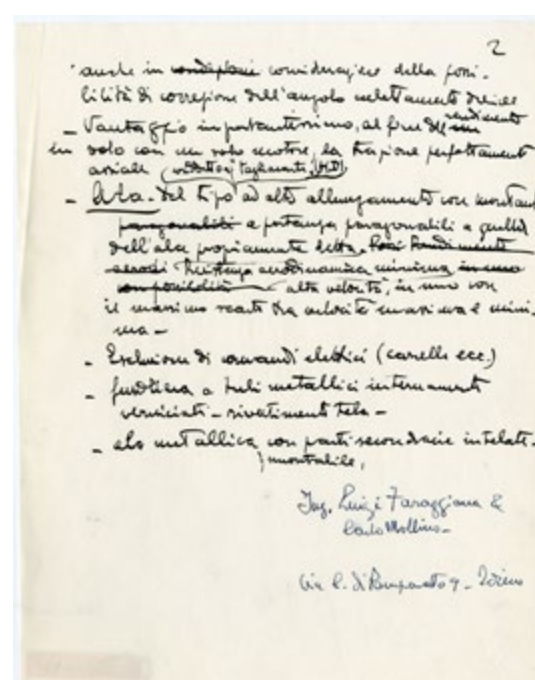 2
anche in condizioni considerazione della possi-
bilità di correzione dell'angolo
- Vantaggio importantissimo, al fine del rendimento
in volo con un solo motore, la trazione perfettament
assiale (ridotta tagliamento, MD)
- Ala - del tipo ad alto allungamento con montant
paragonabili e portanza paragonabili a quella
dell'ala propriamente detta.
Resistenza aerodinamica minima in uno
alta velocità, in uno con
il massimo scarto tra velocità massima e mini-
ma -
- Esclusione di comandi elettrici (carrello ecc.)
- fusoliera a tubi metallici internamente
verniciati - rivestimento tela -
- ala metallica con parti secondarie intelate.
smontabile,
Ing. Luigi Faraggiana &
Carlo Mollino -
Via 9 - Torino